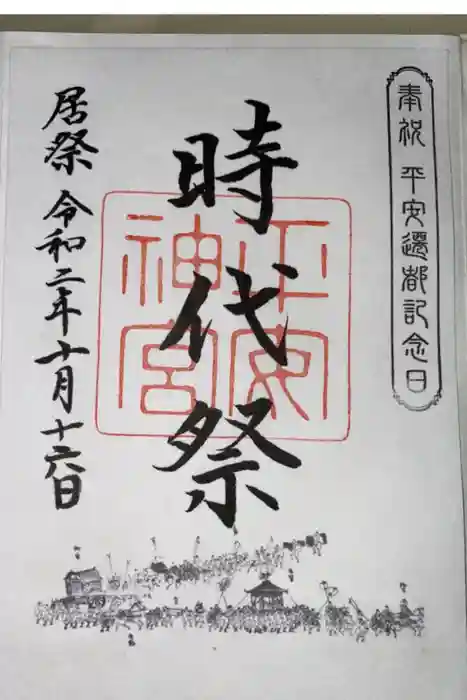 奉祝 平安遷都記念日
時代祭
平安神宮
居祭 令和二年十月十六日